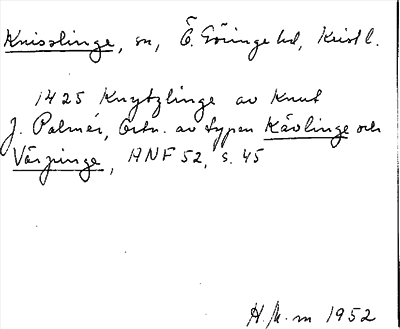 Knisslinge, sn, Ö. Göinge hd, Kristl.
1425 Knytzlinge av Knut
J. Palmér, Ortn. av typen Kävlinge och
Värpinge, ANF 52, s. 45
H. M-m 1952